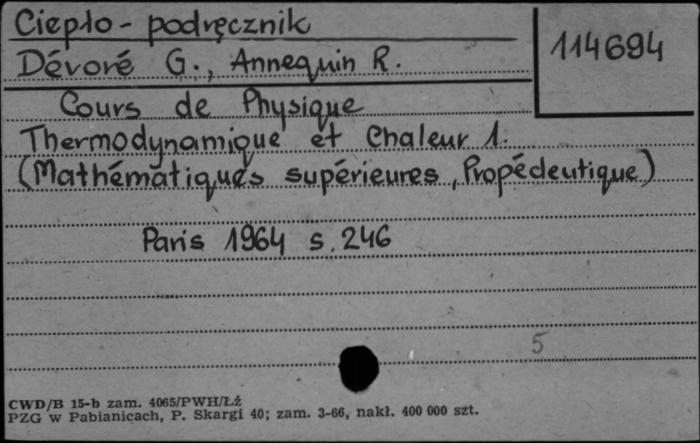 Ciepło - podręcznik
114694
Dévoré G., Annequin R.
Cours de Physique
Thermodynamique et Chaleur 1.
(Mathématiques supérieures, Propédeutique)
Paris 1964 s. 246
5
CWD/B 15-b zam. 4065/PWH/Łź
PZG w Pabianicach, P. Skargi 40; zam. 3-66, nakł. 400 000 szt.